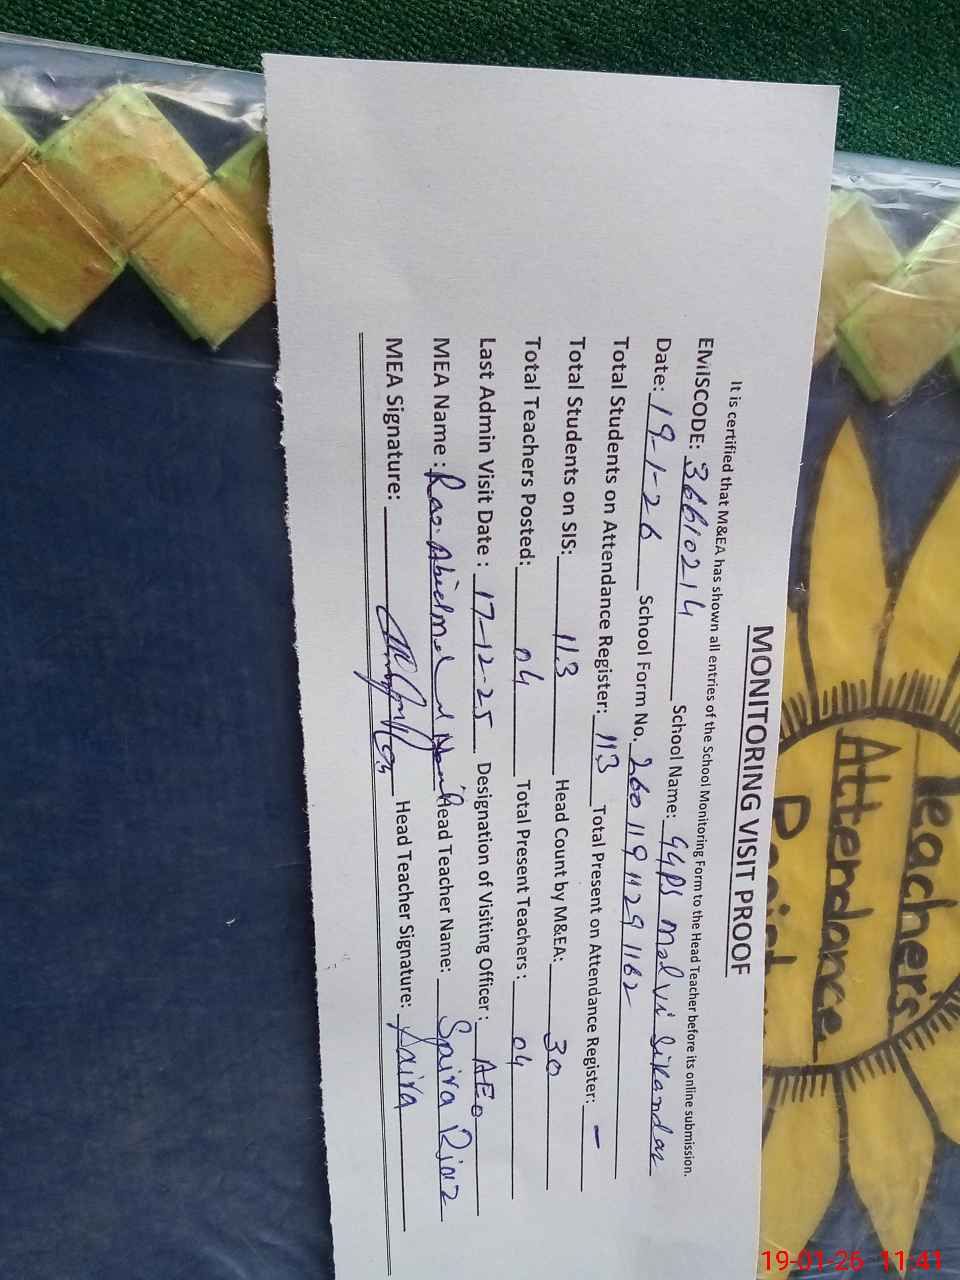 MONITORING VISIT PROOF
It is certified that M&EA has shown all entries of the School Monitoring Form to the Head Teacher before its online submission.
EMISCODE: 36610214 School Name: GGPS Molvi Sikandar
Date: 19-1-26 School Form No. 26011911291162
Total Students on Attendance Register: 113 Total Present on Attendance Register: –
Total Students on SIS: 113 Head Count by M&EA: 30
Total Teachers Posted: 04 Total Present Teachers: 04
Last Admin Visit Date : 17-12-25 Designation of Visiting Officer : AEo
MEA Name : Rao. Head Teacher Name: Saira Riaz
MEA Signature: Head Teacher Signature: Saira
Teachers
Attendance
19-01-26 11:41